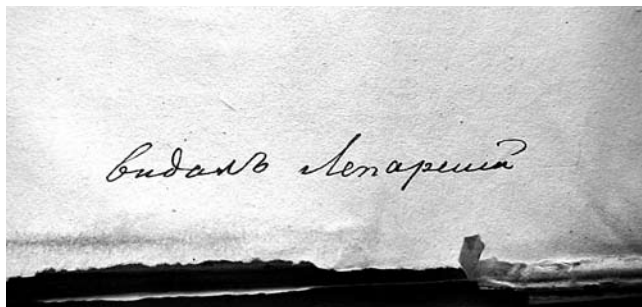 видалъ Лепарскій